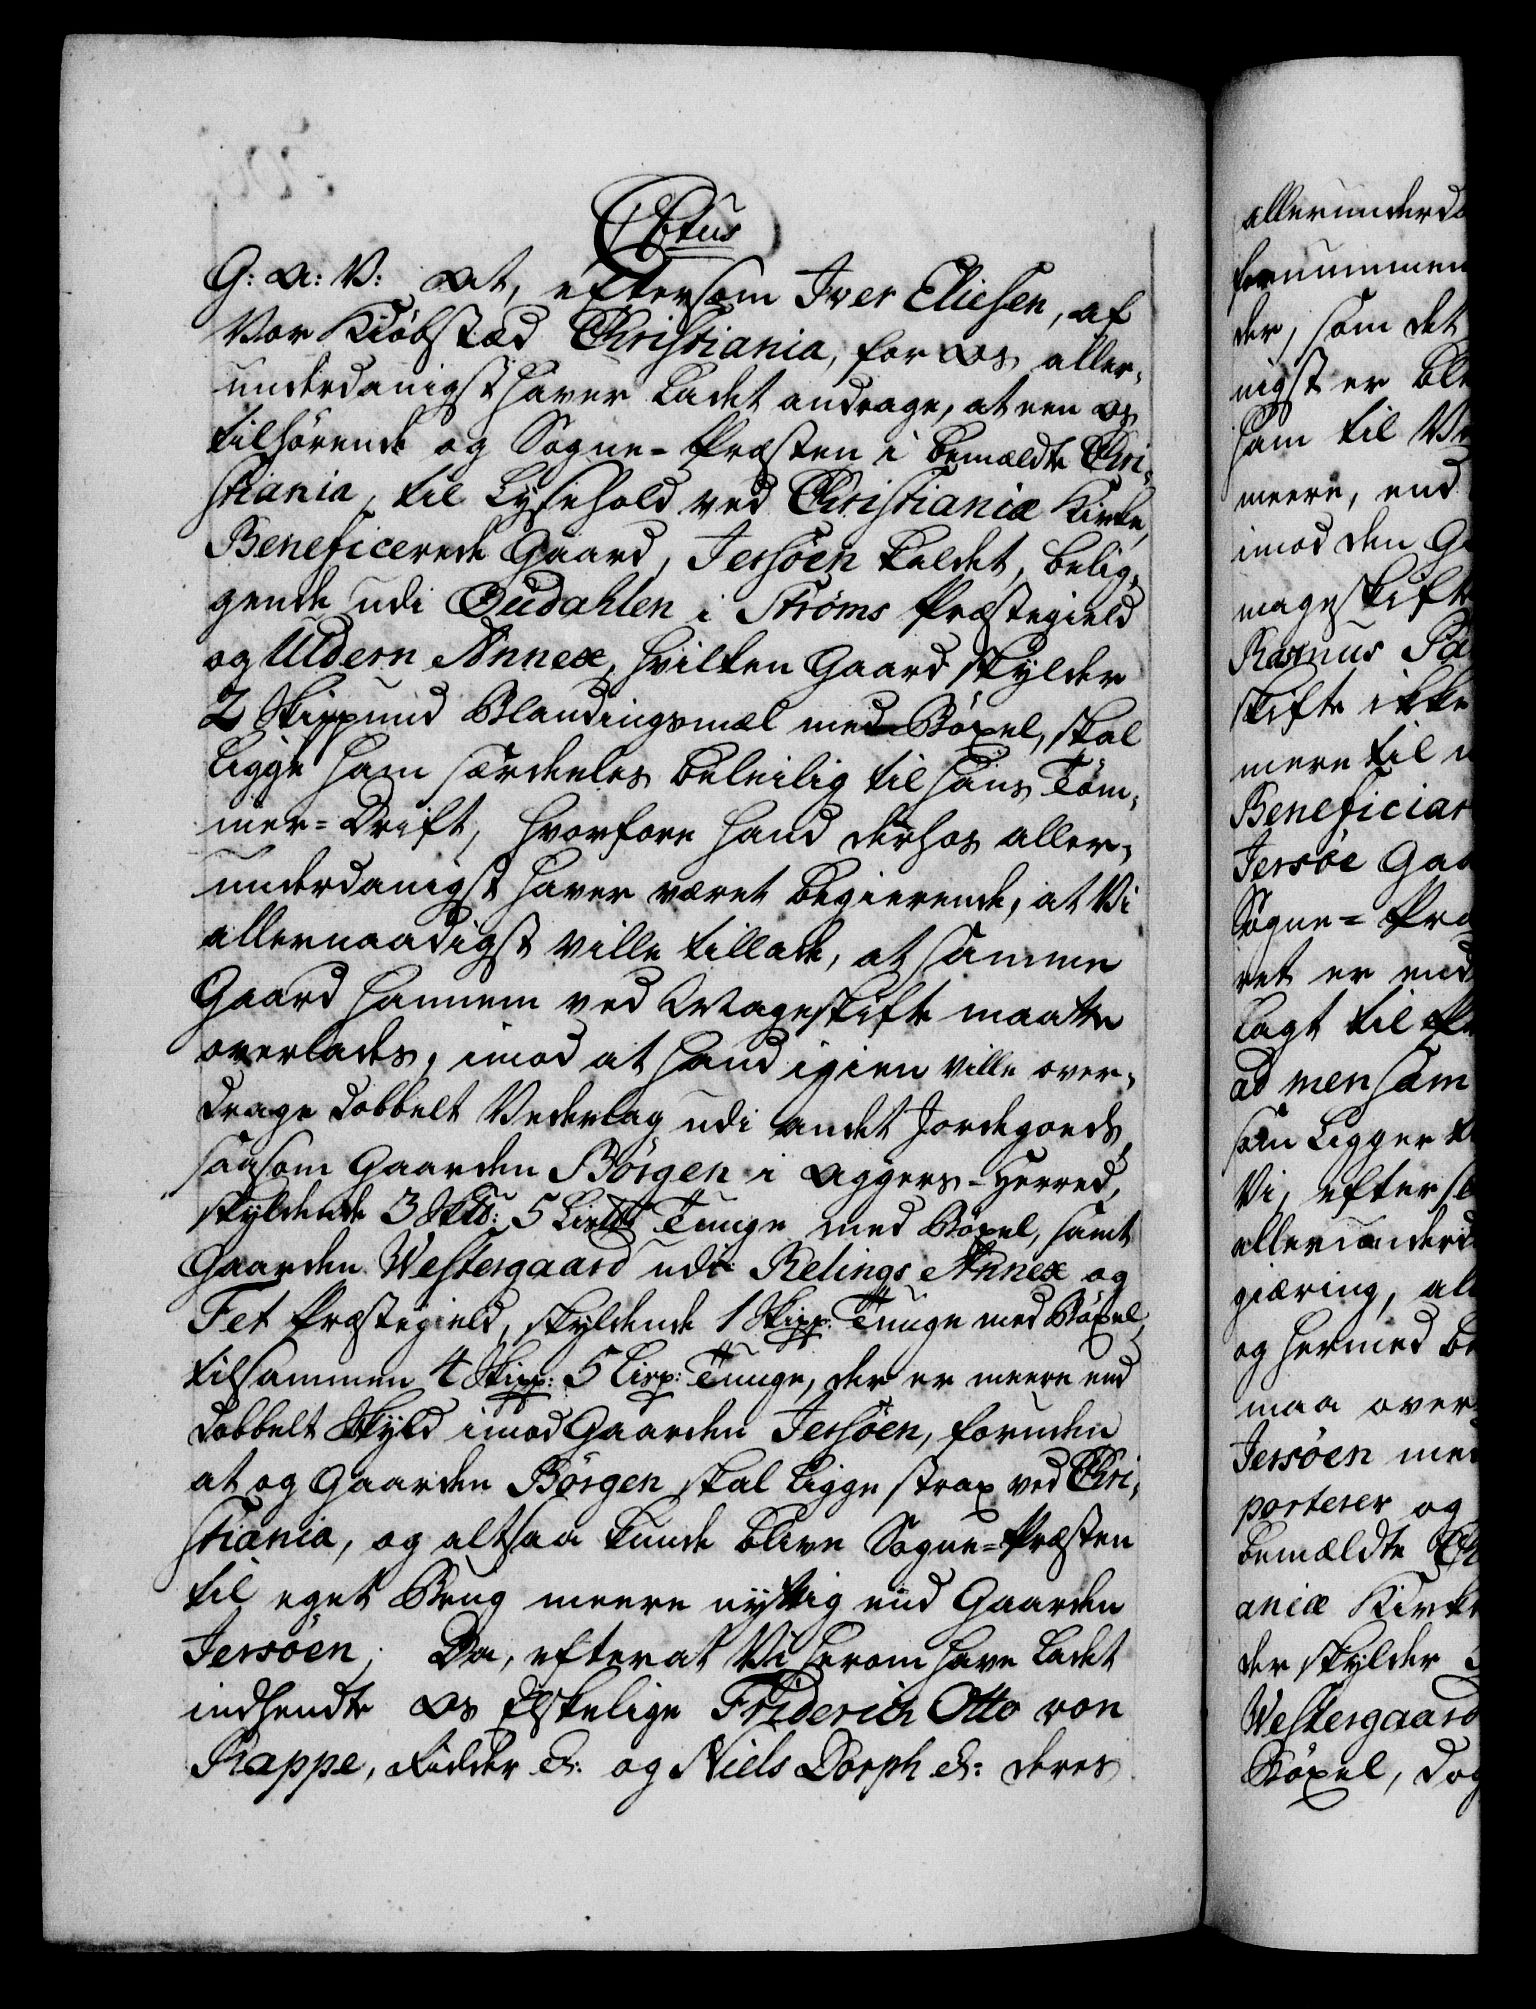 Ctus
G: A: V: At, eftersom Iver Eliesen, af
Vor Kiöbstæd Christiania, for Os aller-
underdanigst haver ladet andrage, at een Os
tilhørende og Sogne-Præsten i bemældte Chri-
stiania, til Lysehold ved Christianiæ Kirke,
Beneficerede Gaard, Jersöen kaldet, belig-
gende udi Oudahlen i Strøms Præstegield
og Uldern Annex, hvilken Gaard skylder
2 Skippund Blandingsmæl med Böxel, skal
ligge ham særdeeles beleilig til hans Töm-
mer-Drift, hvorfore hand derhos aller-
underdanigst haver været begierende, at Vi
allernaadigst ville tillade, at samme
Gaard hannem ved Mageskifte maatte
overlades, imod at hand igien ville over-
drage dobbelt Vederlag udi andet Jordegoeds,
saasom Gaarden Börgen i Aggers-Herred,
skyldende 3 Sk℔: 5 Lis℔ Tunge med Böxel, samt
Gaarden Westergaard udi Relings Annex og
Fet Præstegield, skyldende 1 Skipp: Tunge med Böxel,
tilsammen 4 Skipp: 5 Lisp: Tunge, der er meere end
dobbelt Skyld imod Gaarden Jersöen, foruden
at og Gaarden Börgen skal ligge strax ved Chri-
stiania, og altsaa kunde blive Sogne-Præsten
til eget Brug meere nyttig end Gaarden
Jersöen; Da, efterat Vi herom have ladet
indhendte Os Elskelige Friderich Otto von
Rappe, Ridder &: og Niels Dorph &: deres
allerunderda
fornummen
der, som det
nigst er ble
ham til
meere, end
imod den Ga
mageskifte
Rasmus
skifte ikke
mere til
Beneficiar
Jersöe Gaa
Sogne-Præ
ret er med
lagt til
ad mensam
som ligger
Vi, efter
allerunderd
giæring, all
og hermed be
maa over
Jersöen med
porterer og
bemældte Ch
aniæ Kirke
der skylder 3
Westergaard
Böxel, dog